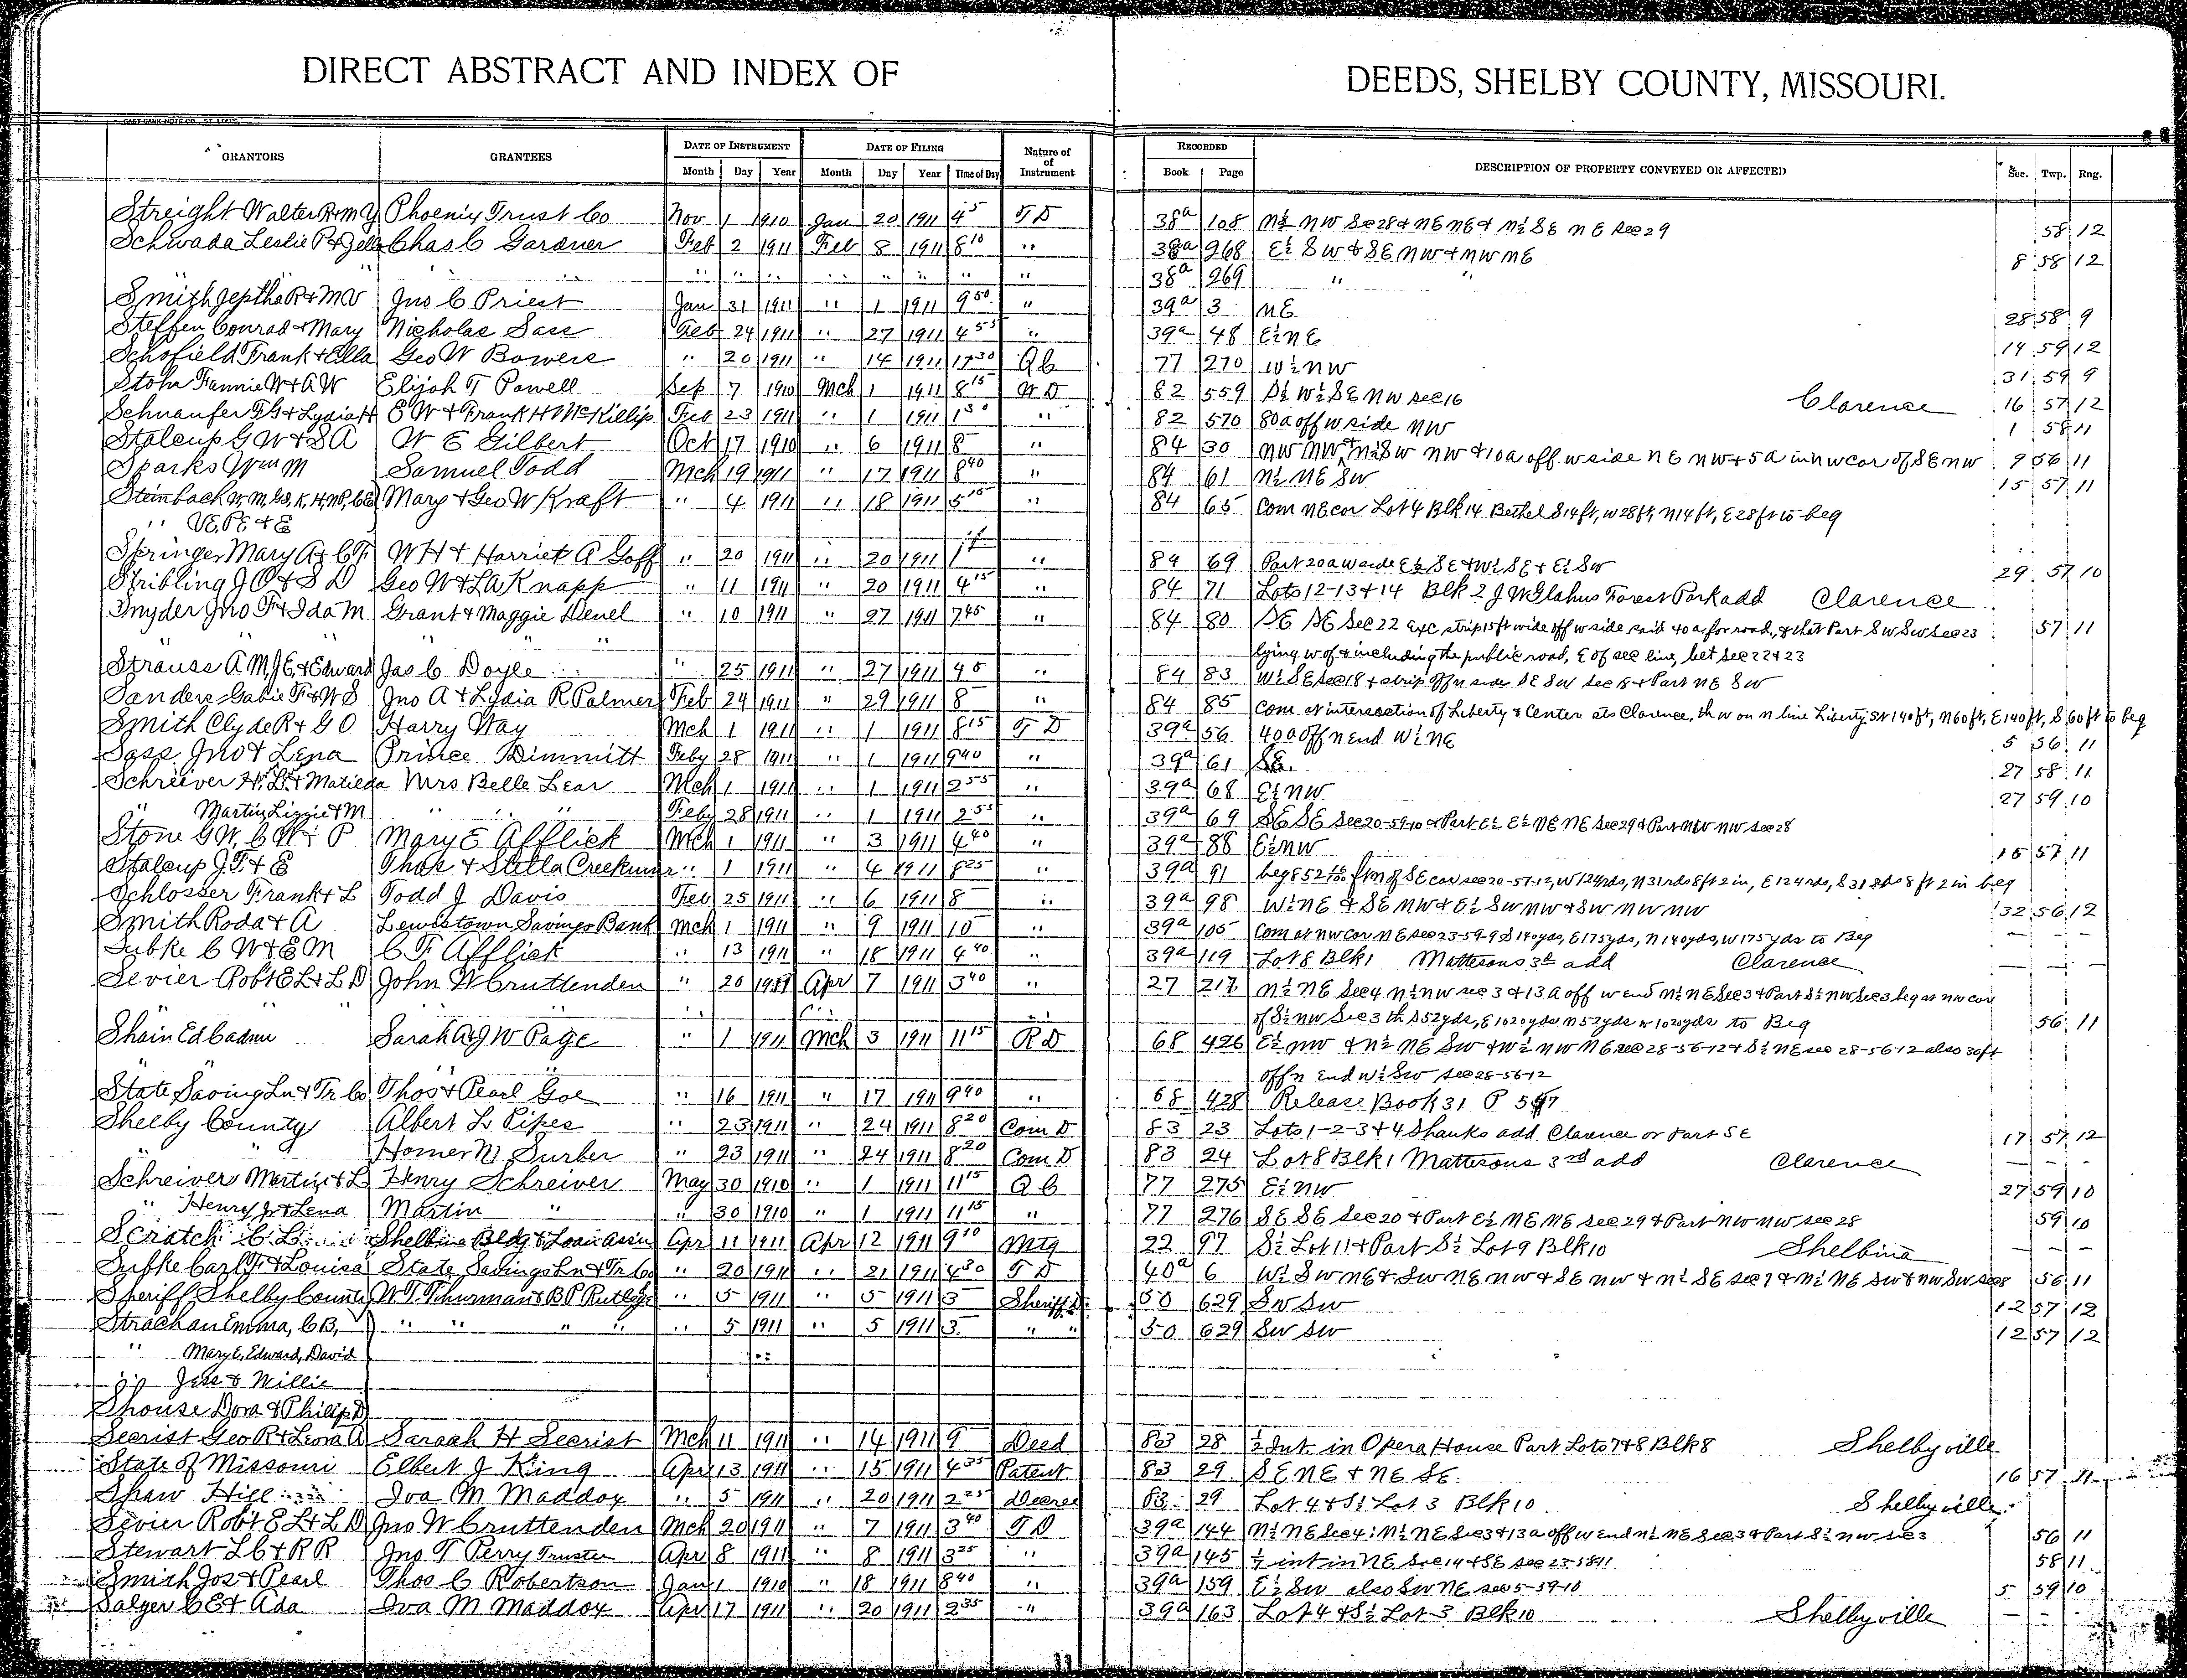 DIRECT ABSTRACT AND INDEX OF DEEDS, SHELBY COUNTY, MISSOURI.
GRANTORS GRANTEES DATE OF INSTRUMENT DATE OF FILING Nature of of Instrument RECORDED DESCRIPTION OF PROPERTY CONVEYED OR AFFECTED Sec. Twp. Rng.
Month Day Year Month Day Year Time of Day Book Page
Streight Walter R & M Y Phoenix Trust Co Nov 1 1910 Jan 20 1911 4 5 T D 38a 108 N½ NW Sec 28 & NE NE & N½ SE NE Sec 29 58 12
Schwada Leslie P & Zella Chas C Gardner Feb 2 1911 Feb 8 1911 8 10 " 38a 268 E½ SW & SE NW & NW NE 8 58 12
" " " " " " " " 38a 269 " "
Smith Jeptha R & M V Jno C Priest Jan 31 1911 " 1 1911 9 50 " 39a 3 NE 28 58 9
Steffen Conrad & Mary Nicholas Sass Feb 24 1911 " 27 1911 4 55 " 39a 48 E½ NE 14 59 12
Schofield Frank & Ella Geo W Bowers " 20 1911 " 14 1911 1 30 Q C 77 270 W½ NW 31 59 9
Stohr Fannie W & A W Elijah T Powell Sep 7 1910 Mch 1 1911 8 15 W D 82 559 S½ W½ SE NW Sec 16 Clarence 16 57 12
Schnaufer F G & Lydia H E W & Frank H McKillip Feb 23 1911 " 1 1911 1 30 " 82 570 80a off W side NW 1 58 11
Stalcup G W & S A W E Gilbert Oct 17 1910 " 6 1911 8 " 84 30 NW NW, N½ SW NW & 10a off W side NE NW & 5a in NW cor of SE NW 9 56 11
Sparks Wm M Samuel Todd Mch 19 1911 " 17 1911 8 40 " 84 61 N½ NE SW 15 57 11
Steinbach Mary & Geo W Kraft " 4 1911 " 18 1911 5 15 " 84 65 Com NE cor Lot 4 Blk 14 Bethel S 14 ft, W 28 ft, N 14 ft, E 28 ft to beg
" V E, P E & E
Springer Mary A & C F W H & Harriet A Goff " 20 1911 " 20 1911 1 " 84 69 Part 20a W side E½ SE & W½ SE & E½ SW 29 57 10
Stribling J O & S D Geo W & L A Knapp " 11 1911 " 20 1911 4 15 " 84 71 Lots 12-13 & 14 Blk 2 J W Glahns Forest Park add Clarence
Snyder Jno F & Ida M Grant & Maggie Denel " 10 1911 " 27 1911 7 45 " 84 80 SE SE Sec 22 exc strip 15 ft wide off W side said 40a for road, & that Part SW SW Sec 23 57 11
" " " " " lying W of & including the public road, E of sec line, bet Sec 22 & 23
Strauss A M, J E, & Edward Jas C Doyle " 25 1911 " 27 1911 9 5 " 84 83 W½ SE Sec 18 & strip off N side SE SW Sec 18 & Part NE SW
Sanders Gabie F & W S Jno A & Lydia R Palmer Feb 24 1911 " 29 1911 8 " 84 85 Com at intersection of Liberty & Center sts Clarence, th W on N line Liberty St 140 ft, N 60 ft, E 140 ft, S 60 ft to beg
Smith Clyde R & G O Harry Way Mch 1 1911 " 1 1911 8 15 T D 39a 56 40a off N end W½ NE 5 56 11
Sass Jno & Lena Prince Dimmitt Feby 28 1911 " 1 1911 9 40 " 39a 61 SE. 27 58 11
Schreiver H. L. & Matilda Mrs Belle Lear Mch 1 1911 " 1 1911 2 55 " 39a 68 E½ NW 27 59 10
" Martin, Lizzie & M " " " Feby 28 1911 " 1 1911 2 55 " 39a 69 SE SE Sec 20-59-10 & Part E½ E½ NE NE Sec 29 & Part NW NW Sec 28
Stone G W, C W & P Mary E Afflick Mch 1 1911 " 3 1911 4 40 " 39a 88 E½ NW 15 57 11
Stalcup J. F. & E Thos & Stella Creekmur " 1 1911 " 4 1911 8 25 " 39a 91 beg 852 fm of SE cor Sec 20-57-12, W 124 rds, N 31 rds 8 ft 2 in, E 124 rds, S 31 rds 8 ft 2 in beg
Schlosser Frank & L Todd J Davis Feb 25 1911 " 6 1911 8 " 39a 98 W½ NE & SE NW & E½ SW NW & SW NW NW 32 56 12
Smith Roda & A Lewistown Savings Bank Mch 1 1911 " 9 1911 10 " 39a 105 Com at NW cor NE Sec 23-59-9 S 140 yds, E 175 yds, N 140 yds, W 175 yds to Beg — — —
Subke C W & E M C. F. Afflick " 13 1911 " 18 1911 4 40 " 39a 119 Lot 8 Blk 1 Mattesons 3d add Clarence — — —
Sevier Robt E L & L D John W Cruttenden " 20 1911 Apr 7 1911 3 40 " 27 217 N½ NE Sec 4 N½ NW Sec 3 & 13a off W end N½ NE Sec 3 & Part S½ NW Sec 3 beg at NW cor
of S½ NW Sec 3 th S 52 yds, E 1020 yds N 52 yds W 1020 yds to Beg 56 11
Shain Ed Sarah A & J W Page " 1 1911 Mch 3 1911 11 15 R D 68 426 E½ NW & N½ NE SW & W½ NW NE Sec 28-56-12 & S½ NE Sec 28-56-12 also 30 ft
off N end W½ SW Sec 28-56-12
State Saving Ln & Tr Co Thos & Pearl Goe " 16 1911 " 17 1911 9 40 " 68 428 Release Book 31 P 597
Shelby County Albert L Pipes " 23 1911 " 24 1911 8 20 Com D 83 23 Lots 1-2-3 & 4 Shanks add Clarence or Part SE 17 57 12
" Homer N. Surber " 23 1911 " 24 1911 8 20 Com D 83 24 Lot 8 Blk 1 Mattesons 3rd add Clarence — — —
Schreiver Martin & L Henry Schreiver May 30 1910 " 1 1911 11 15 Q C 77 275 E½ NW 27 59 10
" Henry Jr & Lena Martin " " 30 1910 " 1 1911 11 15 " 77 276 SE SE Sec 20 & Part E½ NE NE Sec 29 & Part NW NW Sec 28 59 10
Scratch C. L. Shelbina Bldg & Loan Assn Apr 11 1911 Apr 12 1911 9 10 Mtg 22 97 S½ Lot 11 & Part S½ Lot 9 Blk 10 Shelbina — — —
Subke Carl F. & Louisa State Savings Ln & Tr Co " 20 1911 " 21 1911 4 30 T D 40a 6 W½ SW NE & SW NE NW & SE NW & N½ SE Sec 7 & N½ NE SW & NW SW Sec 8 56 11
Sheriff Shelby County W. T. Thurman & B P Rutledge " 5 1911 " 5 1911 3 Sheriff D. 50 629 SW SW 12 57 12
Strachan Emma, C B, " " " " " 5 1911 " 5 1911 3 " " 50 629 SW SW 12 57 12
" Mary E, Edward, David
" Jess & Willie
Shouse Dora & Philip D
Secrist Geo R & Leora A Sarach H Secrist Mch 11 1911 " 14 1911 9 Deed 83 28 ½ Int in Opera House Part Lots 7 & 8 Blk 8 Shelbyville
State of Missouri Elbert J King Apr 13 1911 " 15 1911 4 35 Patent 83 29 SE NE & NE SE. 16 57 11
Shaw Hill Iva M Maddox " 5 1911 " 20 1911 2 25 Decree 83 29 Lot 4 & S½ Lot 3 Blk 10 Shelbyville
Sevier Robt E L & L D Jno W Cruttenden Mch 20 1911 " 7 1911 3 40 T D 39a 144 N½ NE Sec 4: N½ NE Sec 3 & 13a off W end N½ NE Sec 3 & Part S½ NW Sec 3 56 11
Stewart L C & R R Jno T Perry Trustee Apr 8 1911 " 8 1911 3 25 " 39a 145 int in NE Sec 14 & SE Sec 23-58-11 58 11
Smith Jos & Pearl Thos C Robertson Jan 1 1910 " 18 1911 8 40 " 39a 159 E½ SW also SW NE Sec 5-59-10 5 59 10
Salyer C E & Ada Iva M Maddox Apr 17 1911 " 20 1911 2 35 " 39a 163 Lot 4 & S½ Lot 3 Blk 10 Shelbyville — — —